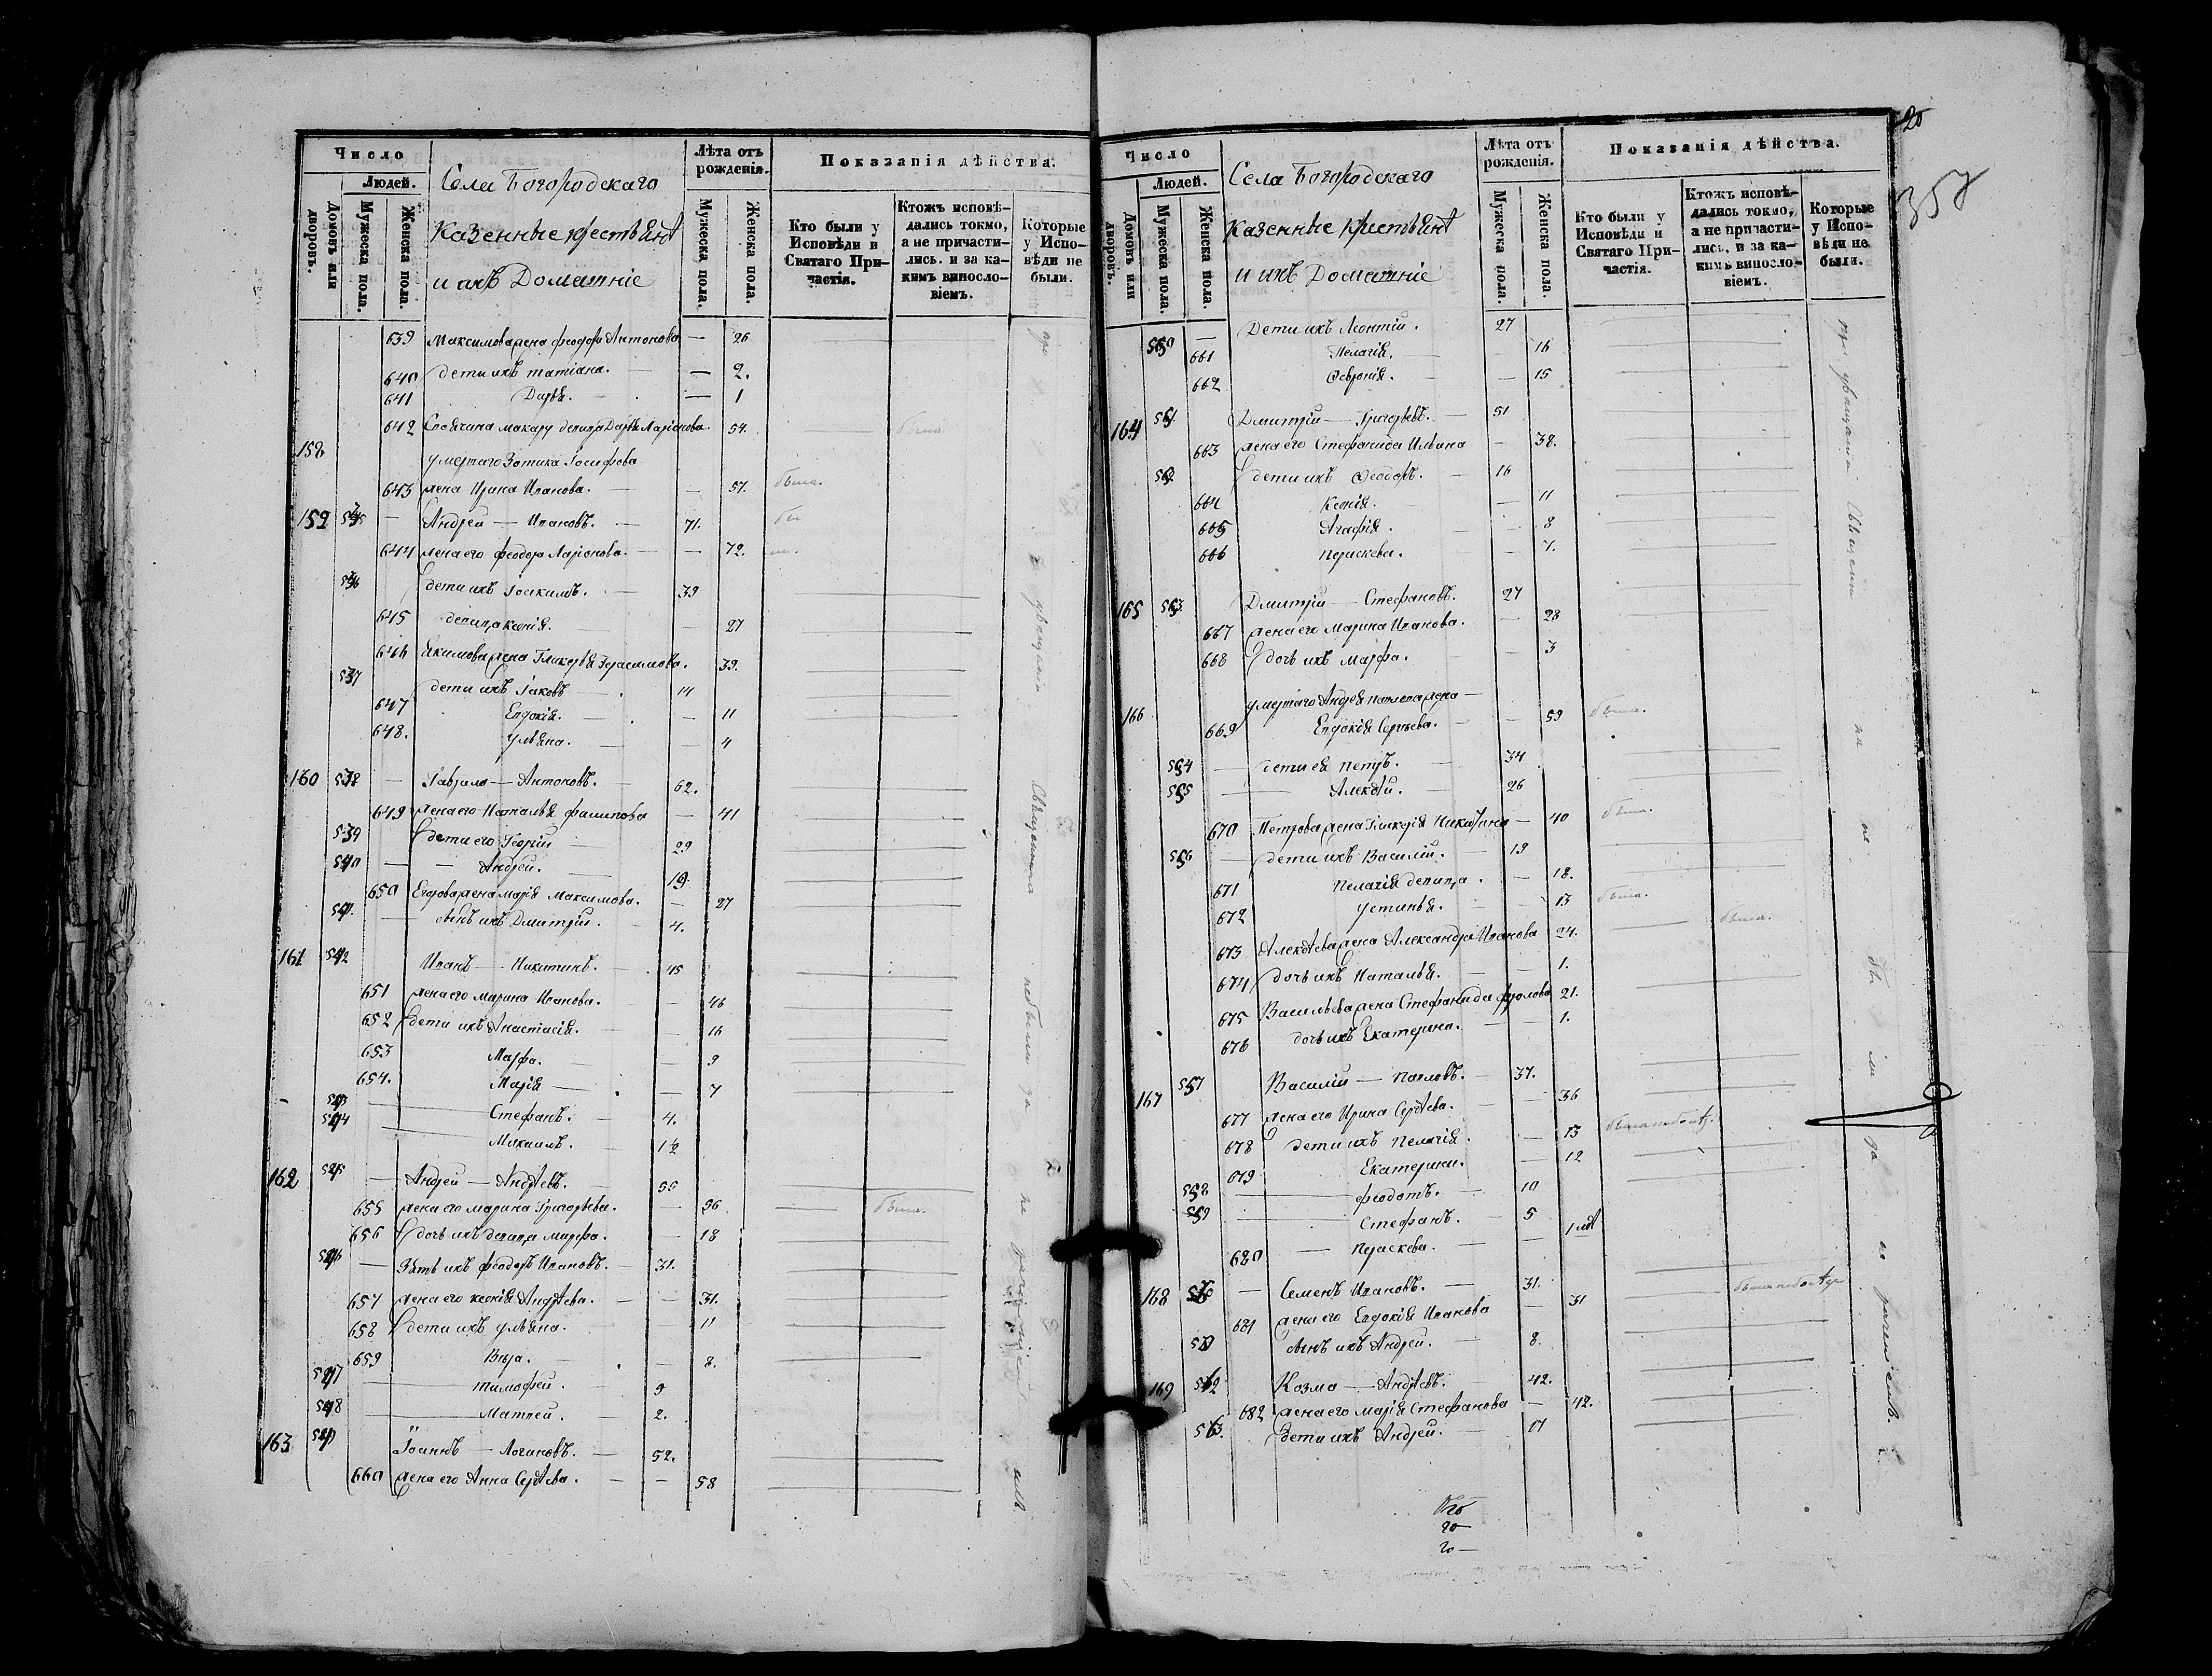 Число
Людей.
Домовъ или дворовъ.
Мужеска пола.
Женска пола.
Села Богородскаго
Казенные крестьянѣ
и ихъ Домашніе
Лѣта отъ рожденія.
Мужеска пола.
Женска пола.
Показанія дѣйства.
Кто были у Исповѣди и Святаго Причастія.
Ктожъ исповѣ-дались токмо, а не причасти-лись. и за ка-кимъ винословіемъ.
Которые у Испо-вѣди не были.
639 Максимова жена Феодора Антонова — 26
640 дети ихъ Татіана. — 2.
641 Дарья. — 1
642 Макару девица Дарья Ларіонова. 54. была.
158 умершаго Зотика Іосифова
643 жена Ирина Иванова. — 57. была.
159 535 — Андрей — Ивановъ. — 71. бы
644 жена его Феодора Ларіонова. — 72.
536 дети ихъ Іоакимъ. — 39
645 девица Ксенія. — 27
646 Екимова жена Гликерья Герасимова. 39.
537 дети ихъ Іаковъ — 14
647 Евдокія. — 11
648. Ульяна. — 4
160 538 — Гаврило — Антоновъ. — 62.
649 жена его Наталья Филипова — 41
539 дети его Георгій — 29
540 — Андрей. — 19.
650 Егорова жена Марія Максимова. — 27
541. — сынъ ихъ Дмитрій. — 4.
161 542 Иванъ — Никитинъ. 45
651 жена его Марина Иванова. — 46
652 дети ихъ Анастасія. — 16
653 Марфа. — 9
654. Марія — 7
543 — Стефанъ. — 4.
544 — Михаилъ. 1½
162 545 — Андрей — Андреевъ. — 55
655 жена его Марина Григорьева. — 56 — была.
656 дочь ихъ девица Марфа. — 18
546 — Зять ихъ Феодоръ Ивановъ. — 31.
657 жена его Ксенія Андреева. — 31.
658 дети ихъ Ульяна. 11
659 Вера. — 8.
547 — Тимофей. 9
548 — Матвей. — 2.
163 549 Іоаннъ — Логиновъ. — 52.
660 жена его Анна Сергѣева. — 58
20
357
Число
Людей.
Домовъ или дворовъ.
Мужеска пола.
Женска пола.
Села Богородскаго
Казенные Крестьянѣ
и ихъ Домашніе
Лѣта отъ рожденія.
Мужеска пола.
Женска пола.
Показанія дѣйства.
Кто были у Исповѣди и Святаго При-частія.
Ктожъ исповѣ-дались токмо, а не причасти-лись, и за ка-кимъ винословіемъ.
Которые у Испо-вѣди не были.
550 — Дети ихъ Леонтій. 27
661 Пелагія. — 16
662 Февронія. — 15
164 551. Дмитрій — Григорьевъ. — 51
663 жена его Стефанида Ильина — 38.
552. дети ихъ Феодоръ. — 16
664 Ксенія. — 11
665 Агафія. — 8
666 Параскева. — 7.
165 553. Дмитрій — Стефановъ. 27
667 жена его Марина Иванова. — 28
668 дочь ихъ Марфа. 3
166 умершаго Андрея Павлова жена —
669 Евдокія Сергѣева. — 59 была.
554 — дети ея Петръ. 34
555 — Алексѣй. — 26
670 Петрова жена Гликерія Никитина — 40 была.
556 — дети ихъ Василій. — 19
671 Пелагія девица. — 18.
672 Устинья. — 13 была.
673 Алексѣева жена Александра Иванова 24. — была.
674 дочь ихъ Наталья. — 1.
675 Васильева жена Стефанида Фролова 21.
676 дочь ихъ Екатерина. — 1.
167 557 Василій — Павловъ. — 37.
677 жена его Ирина Сергѣева. — 36
678 дети ихъ Пелагія. — 13
679 Екатерина. — 12
558 — Феодотъ. — 10
559 — Стефанъ. — 5
680 — Праскева. —
168 560 — Семенъ Ивановъ. — 31.
681 жена его Евдокія Иванова — 31
561 сынъ ихъ Андрей. — 8.
169 562 Козма — Андреевъ. — 42.
682 жена его Марія Стефанова — 42.
563. дети ихъ Андрей. — 17